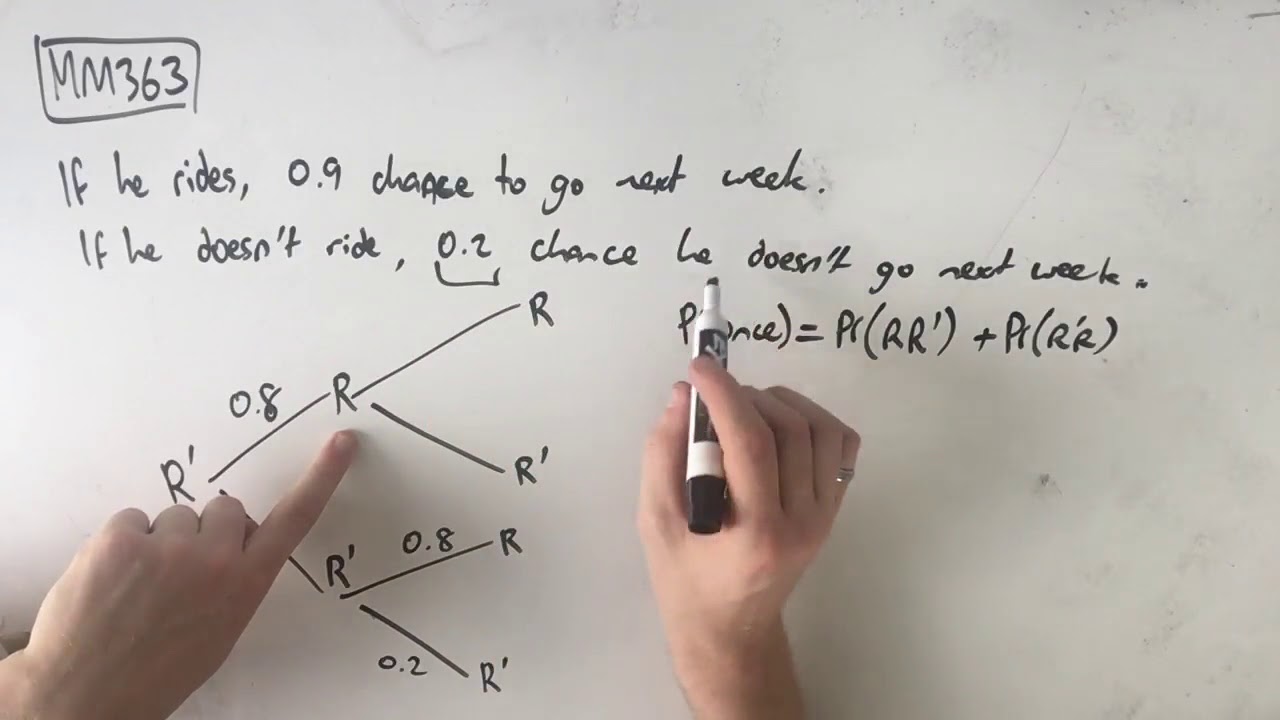 MM363
If he rides, 0.9 chance to go next week.
If he doesn't ride, 0.2 chance he doesn't go next week.
R
= Pr(RR') + Pr(R'R)
0.8 R
R'
R'
0.8 R
R'
0.2 R'